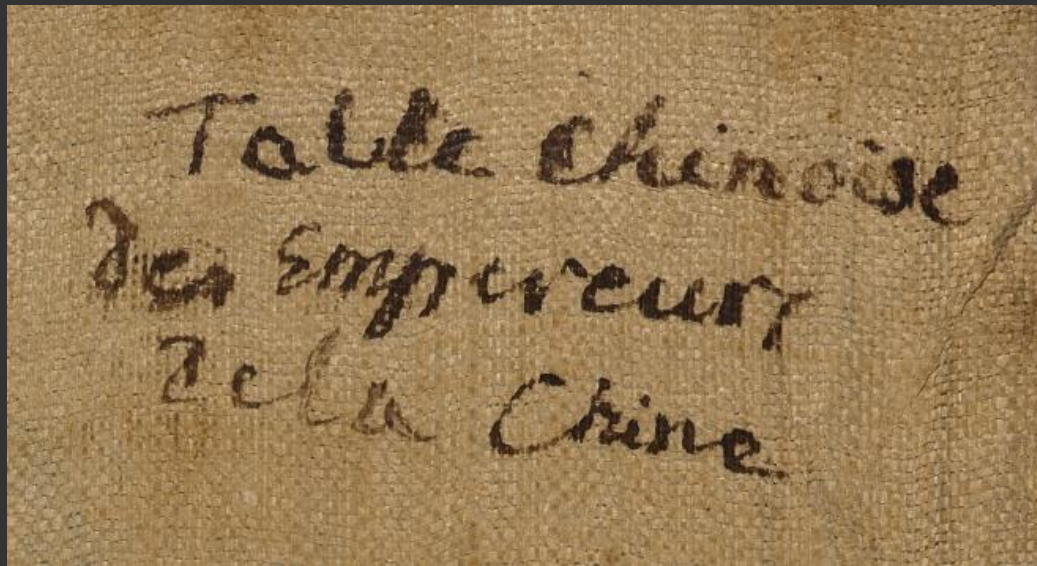 Table chinoise
des Empereurs
de la Chine